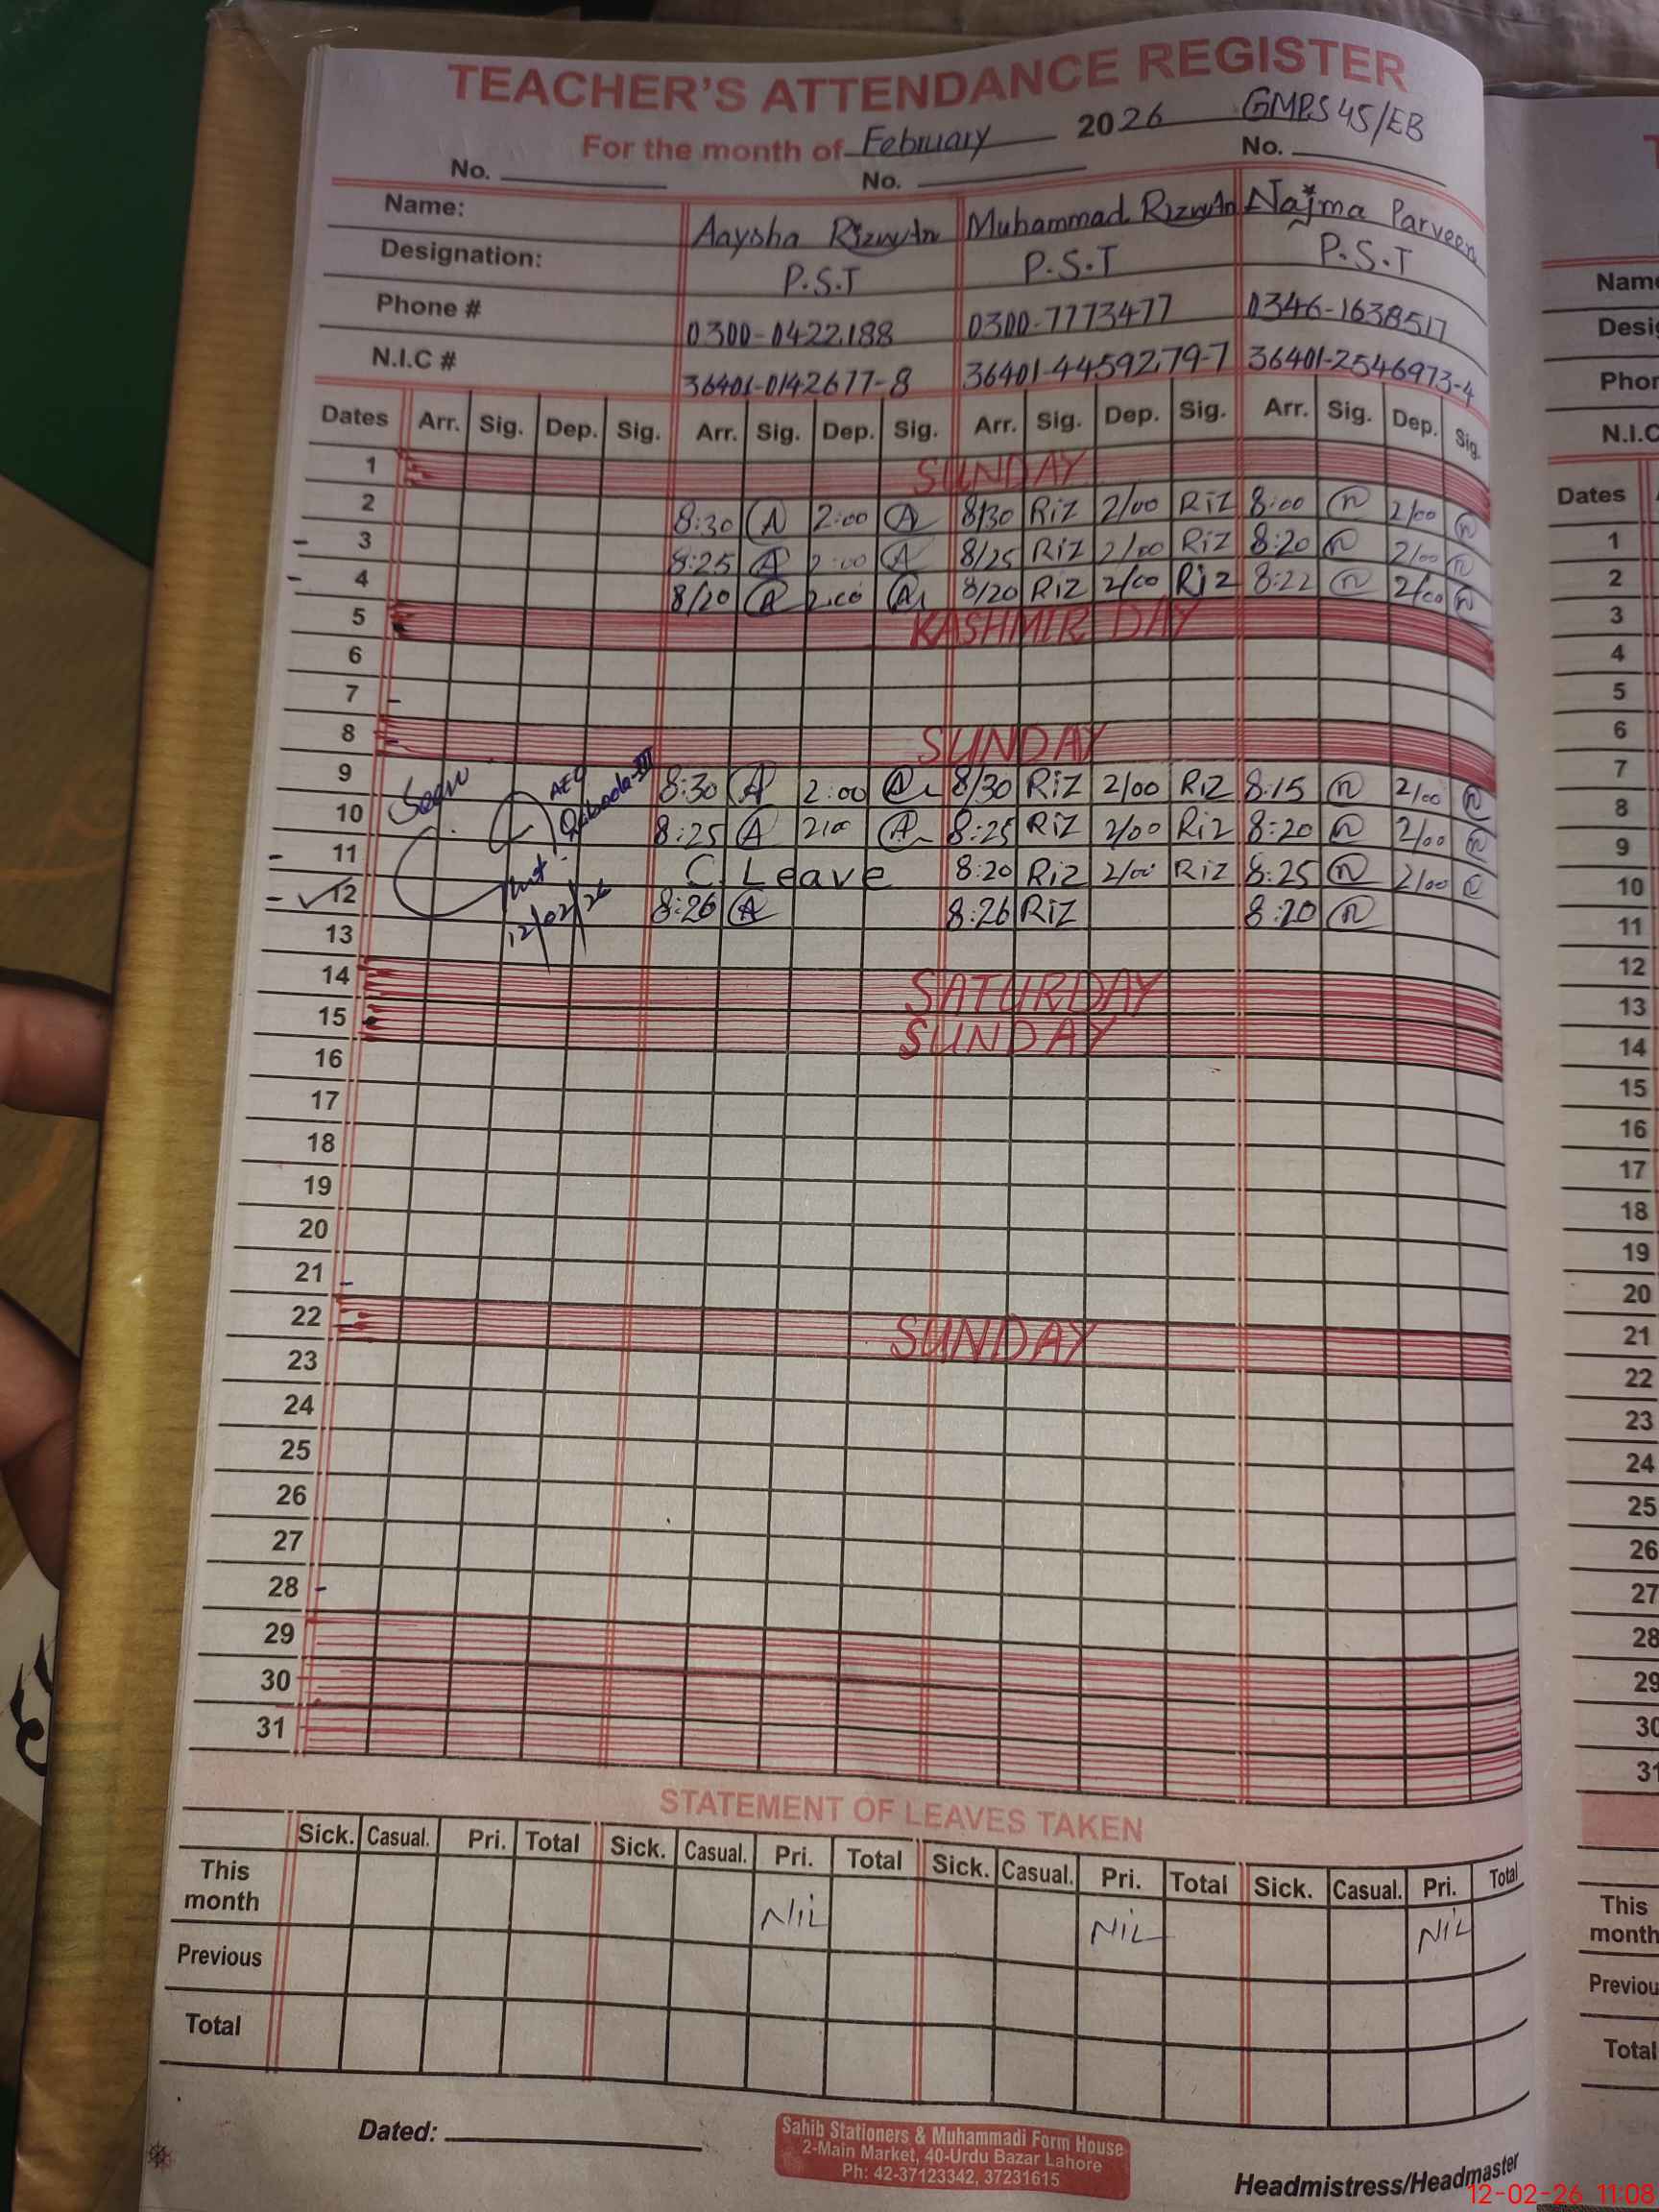 TEACHER'S ATTENDANCE REGISTER
For the month of February 2026 GMPS 45/EB
No. No. No.
Name: Aaysha Rizwan Muhammad Rizwan Najma Parveen
Designation: P.S.T P.S.T P.S.T
Phone # 0300-0422188 0300-7773477 0346-1638517
N.I.C # 36401-0142677-8 36401-4459279-7 36401-2546973-4
Dates Arr. Sig. Dep. Sig. Arr. Sig. Dep. Sig. Arr. Sig. Dep. Sig. Arr. Sig. Dep. Sig.
1 SUNDAY
2 8:30 A 2:00 A 8/30 Riz 2/00 Riz 8:00 n 2/00 n
3 8:25 A 2:00 A 8/25 Riz 2/00 Riz 8:20 n 2/00 n
4 8/20 A 2:00 A 8/20 Riz 2/00 Riz 8:22 n 2/00 n
5 KASHMIR DAY
6
7
8 SUNDAY
9 Seen AEO 8:30 A 2:00 A 8/30 Riz 2/00 Riz 8:15 n 2/00 n
10 8:25 A 2:00 A 8:25 Riz 2/00 Riz 8:20 n 2/00 n
11 C. Leave 8:20 Riz 2/00 Riz 8:25 n 2/00 n
12 12/02/26 8:26 A 8:26 Riz 8:20 n
13
14 SATURDAY
15 SUNDAY
16
17
18
19
20
21
22 SUNDAY
23
24
25
26
27
28
29
30
31
STATEMENT OF LEAVES TAKEN
Sick. Casual. Pri. Total Sick. Casual. Pri. Total Sick. Casual. Pri. Total Sick. Casual. Pri. Total
This month Nil Nil Nil
Previous
Total
Dated:
Sahib Stationers & Muhammadi Form House
2-Main Market, 40-Urdu Bazar Lahore
Ph: 42-37123342, 37231615
Headmistress/Headmaster
12-02-26 11:08
Name
N.I.C
Dates
1
2
3
4
5
6
7
8
9
10
11
12
13
14
15
16
17
18
19
20
21
22
23
24
25
26
27
28
29
30
31
This
month
Total